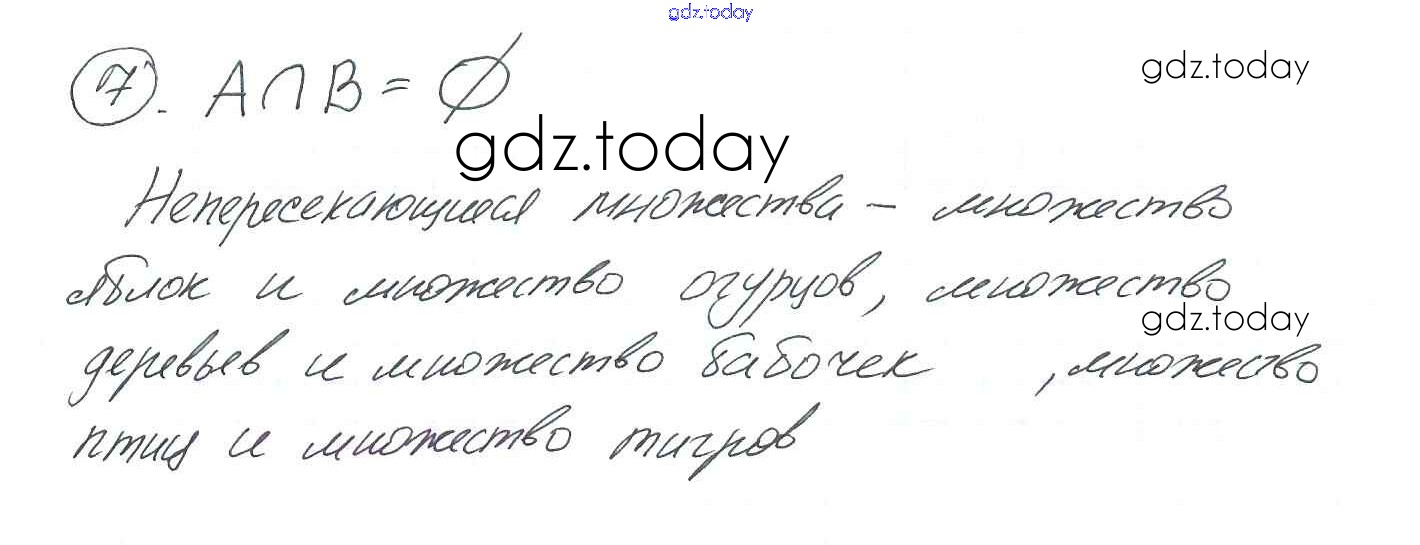 gdz.today
7. A ∩ B = ∅
gdz.today
gdz.today
Непересекающиеся множества – множество
яблок и множество огурцов, множество
gdz.today
деревьев и множество бабочек , множество
птиц и множество тигров